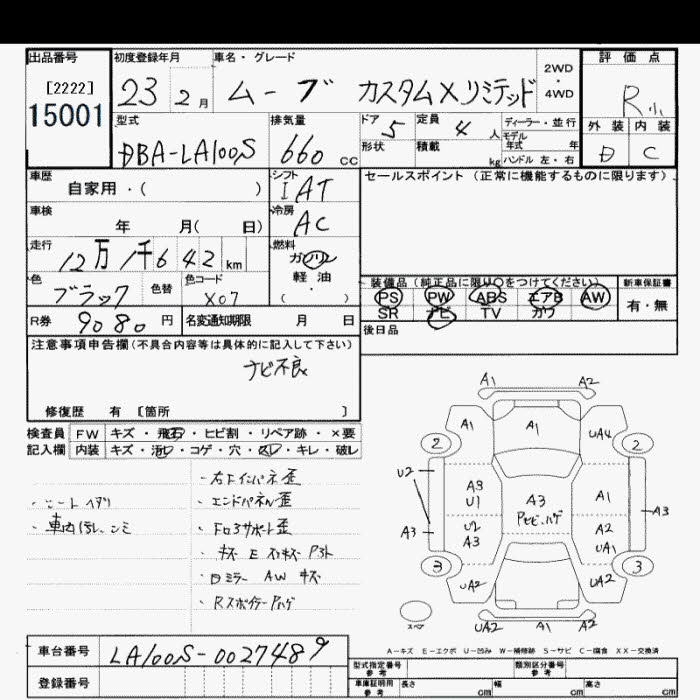 出品番号 初度登録年月 車名・グレード 2WD・4WD 評価点
[2222]
15001 23 2月 ムーブ カスタムXリミテッド R
型式 排気量 ドア 定員 ディーラー・並行 外装 内装
DBA-LA100S 660cc 5 4人 モデル年式 年 D C
形状 積載 kg ハンドル 左・右
車歴 シフト セールスポイント(正常に機能するものに限ります)
自家用・( ) IAT
車検 冷房
年 月( 日) AC
走行 燃料
12万1千642km ガソリン
色 色替 色コード 軽・油
ブラック X07 ( ・ )
装備品(純正品に限り○をつけてください) 新車保証書
PS PW ABS エアB AW 有・無
SR ナビ TV カワ
R券 9080円 名変通知期限 月 日
後日品
注意事項申告欄(不具合内容等は具体的に記入して下さい)
ナビ不良
修復歴 有 [箇所 ]
検査員 FW キズ・飛石・ヒビ割・リペア跡・×要
記入欄 内装 キズ・汚レ・コゲ・穴・スレ・キレ・破レ
・シートヘタリ
・車内汚レ、シミ
・右Fインパネ歪
・エンドパネル歪
・Fロアサポート歪
・キズ E
・ロミラー AW キズ
・Rスポイラーハゲ
A1 A2
A1 A1 UA4
2 2
U2 A3 U1 A3 A1
A3 U2 A3 A2 UA1 A3
3 3
UA2 UA2
スペア UA2 A1 A2
A-キズ E-エクボ U-凹み W-補修跡 S-サビ C-腐食 XX-交換済
車台番号 LA100S-0027489
登録番号
型式指定番号 参考 類別区分番号 参考
車庫証明用 参考 長さ cm 幅 cm 高さ cm